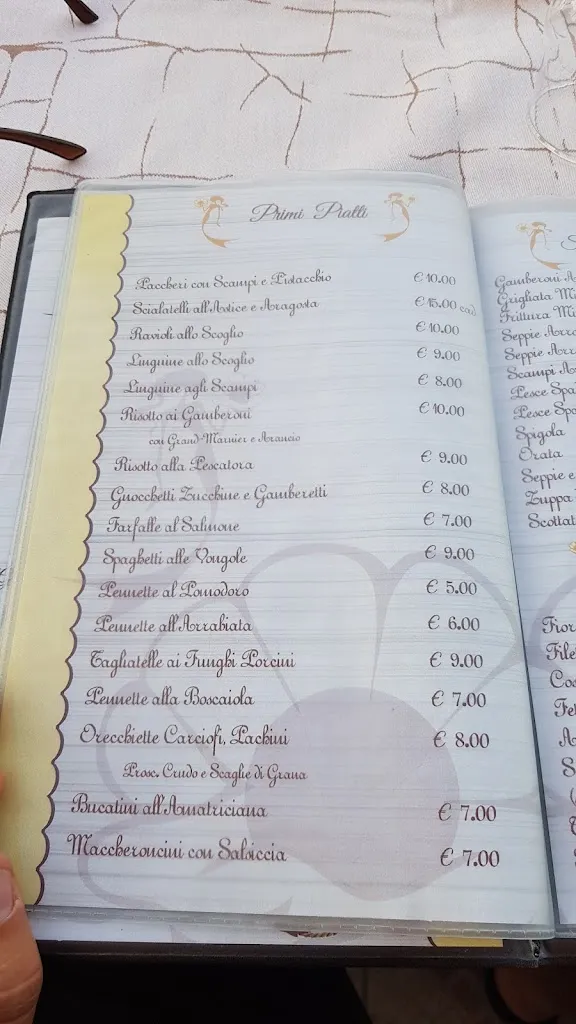 Primi Piatti
Paccheri con Scampi e Pistacchio € 10.00
Scialatelli all'Astice e Aragosta € 15.00 cad
Ravioli allo Scoglio € 10.00
Linguine allo Scoglio € 9.00
Linguine agli Scampi € 8.00
Risotto ai Gamberoni € 10.00
con Grand Marnier e Arancio
Risotto alla Pescatora € 9.00
Gnocchetti Zucchine e Gamberetti € 8.00
Farfalle al Salmone € 7.00
Spaghetti alle Vongole € 9.00
Pennette al Pomodoro € 5.00
Pennette all'Arrabiata € 6.00
Tagliatelle ai Funghi Porcini € 9.00
Pennette alla Boscaiola € 7.00
Orecchiette Carciofi, Pachini € 8.00
Prosc. Crudo e Scaglie di Grana
Bucatini all'Amatriciana € 7.00
Maccheroncini con Salsiccia € 7.00
Gamberoni
Grigliata
Frittura
Seppie
Seppie
Scampi
Pesce
Pesce
Spigola
Orata
Seppie e
Zuppa